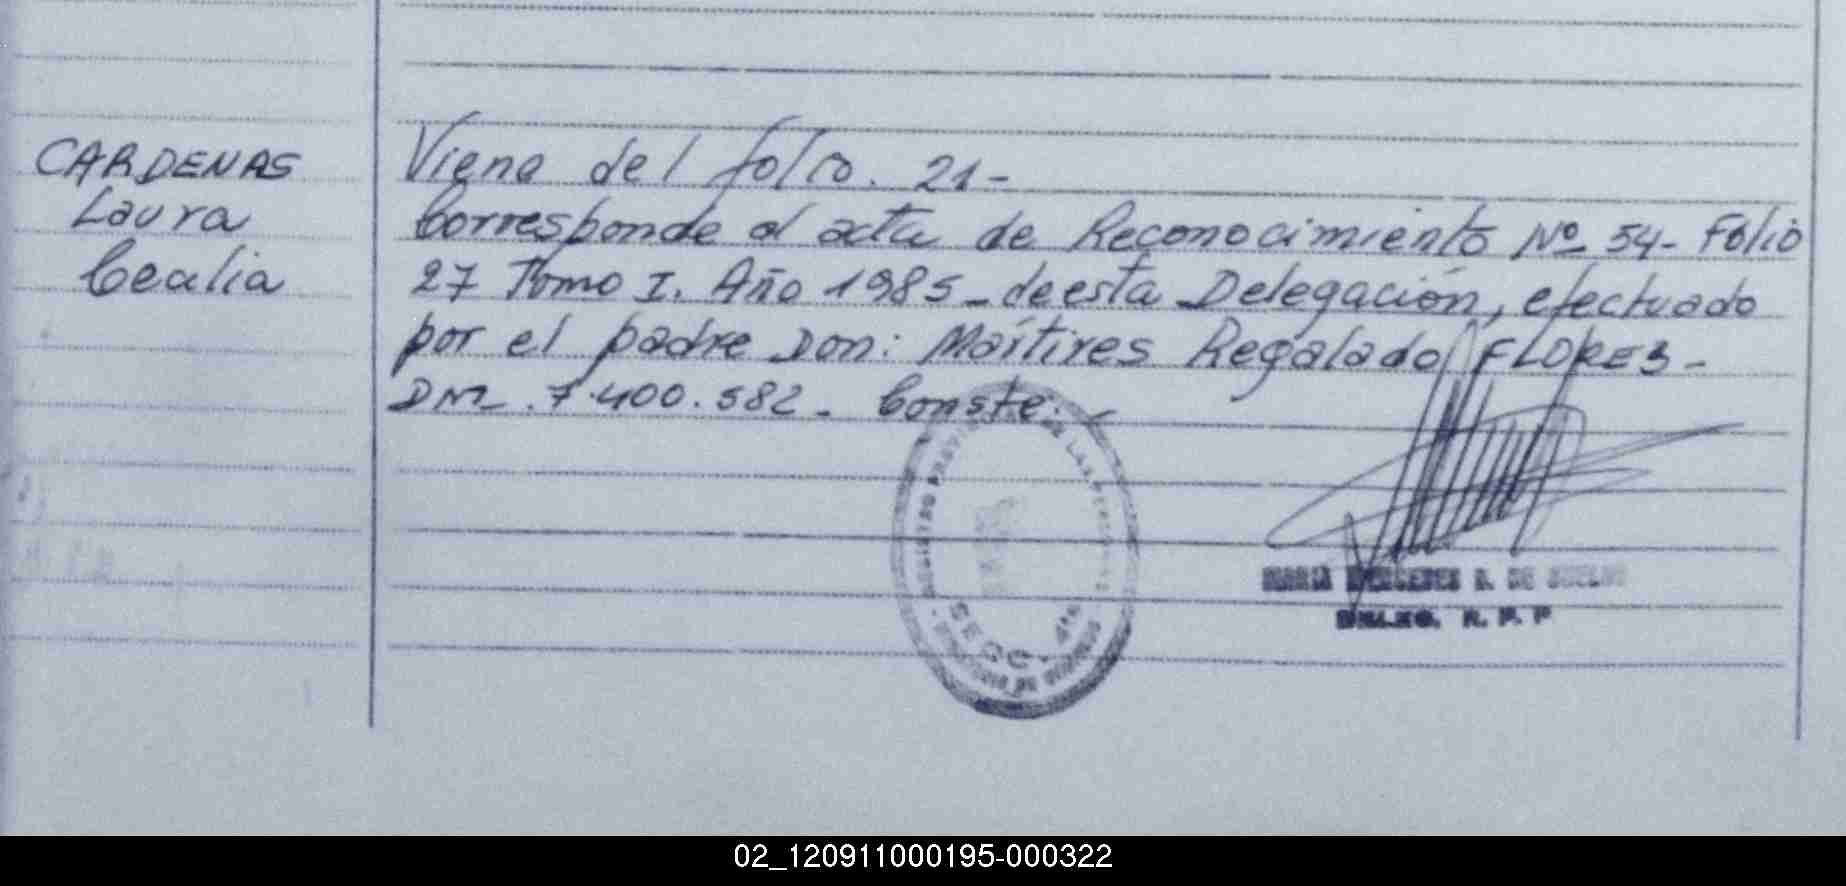 CARDENAS
Laura
Cealia
Viene del folio. 21-
Corresponde al acta de Reconocimiento Nº 54- Folio
27 Tomo I. Año 1985- de esta Delegación, efectuado
por el padre Don: Mártires Regalado FLORES-
DM. 7.400.582. Conste.-
REGISTRO
DE LAS PERSONAS
SECC. 4ta
MARIA MERCEDES R. DE
DELEG. R. P. P
02_120911000195-000322